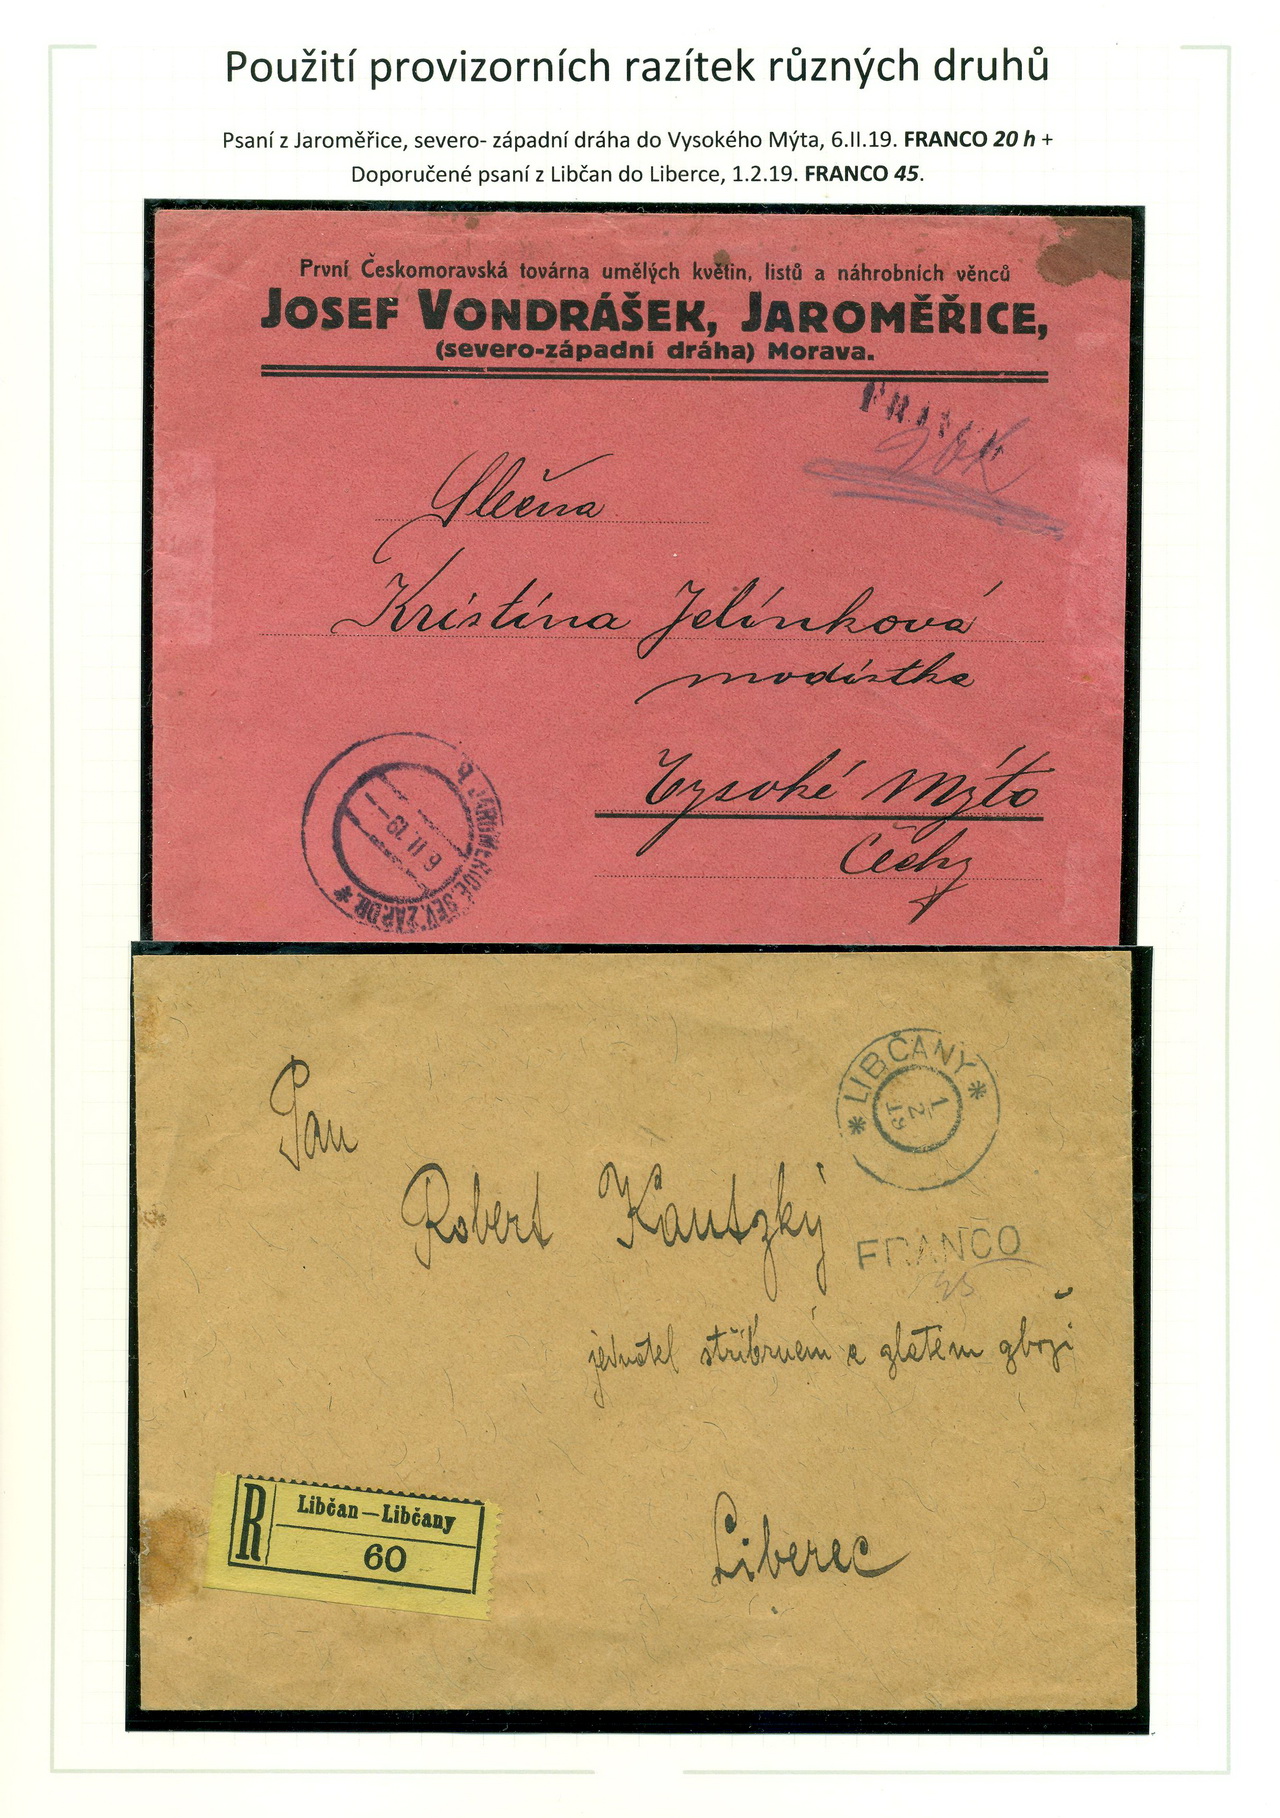 Použití provizorních razítek různých druhů
Psaní z Jaroměřice, severo- západní dráha do Vysokého Mýta, 6.II.19. FRANCO 20 h +
Doporučené psaní z Libčan do Liberce, 1.2.19. FRANCO 45.
První Českomoravská továrna umělých květin, listů a náhrobních věnců
JOSEF VONDRÁŠEK, JAROMĚŘICE,
(severo-západní dráha) Morava.
Slečna
Kristina Jelínková
modistka
Vysoké Mýto
Čechy
JAROMĚŘICE, SEV. ZAP. DR. *
6 II 19
* LIBČANY *
1
2
19
Pan
Robert Kautzký
FRANČO
45
jednatel stříbrném a zlatém zboží
R
Libčan—Libčany
60
Liberec